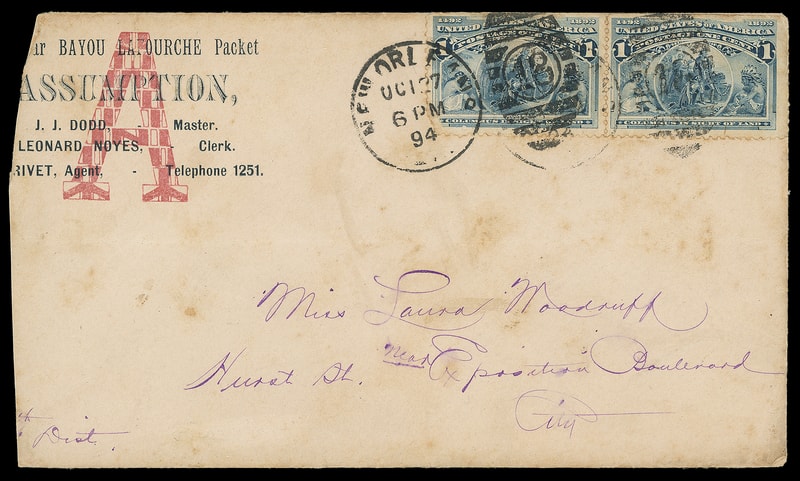 ur BAYOU LAFOURCHE Packet
ASSUMPTION,
A
J. J. DODD, Master.
LEONARD NOYES, - Clerk.
RIVET, Agent, - Telephone 1251.
NEW ORLEANS
OCT 27
6 PM
94
1492 1892
UNITED STATES OF AMERICA
POSTAGE ONE CENT
1
COLUMBUS IN SIGHT OF LAND
1492 1892
UNITED STATES OF AMERICA
POSTAGE ONE CENT
1 1
COLUMBUS IN SIGHT OF LAND
Miss Laura Woodruff
Hurst St. near Exposition Boulevard
City
th Dist.